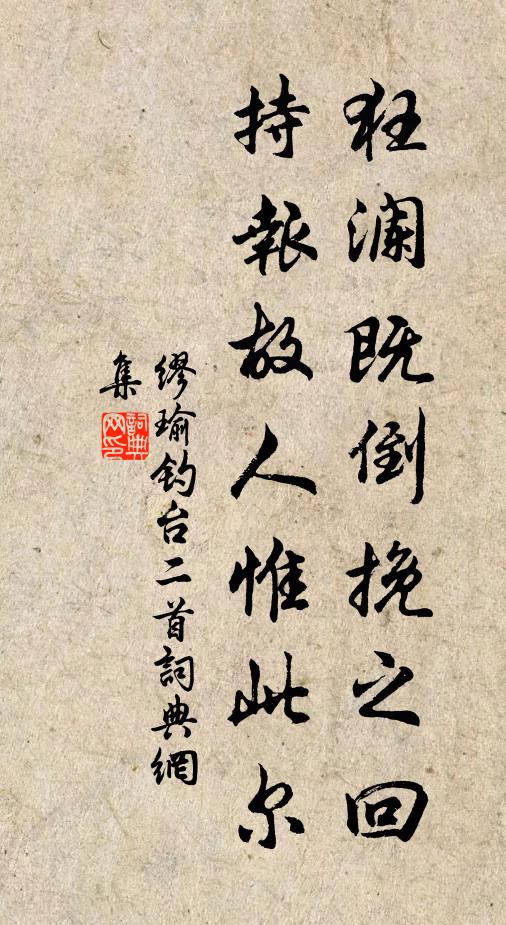 狂澜既倒挽之回
持報故人惟此尔
缪瑜钓台二首詞典網
集
詞典
网印